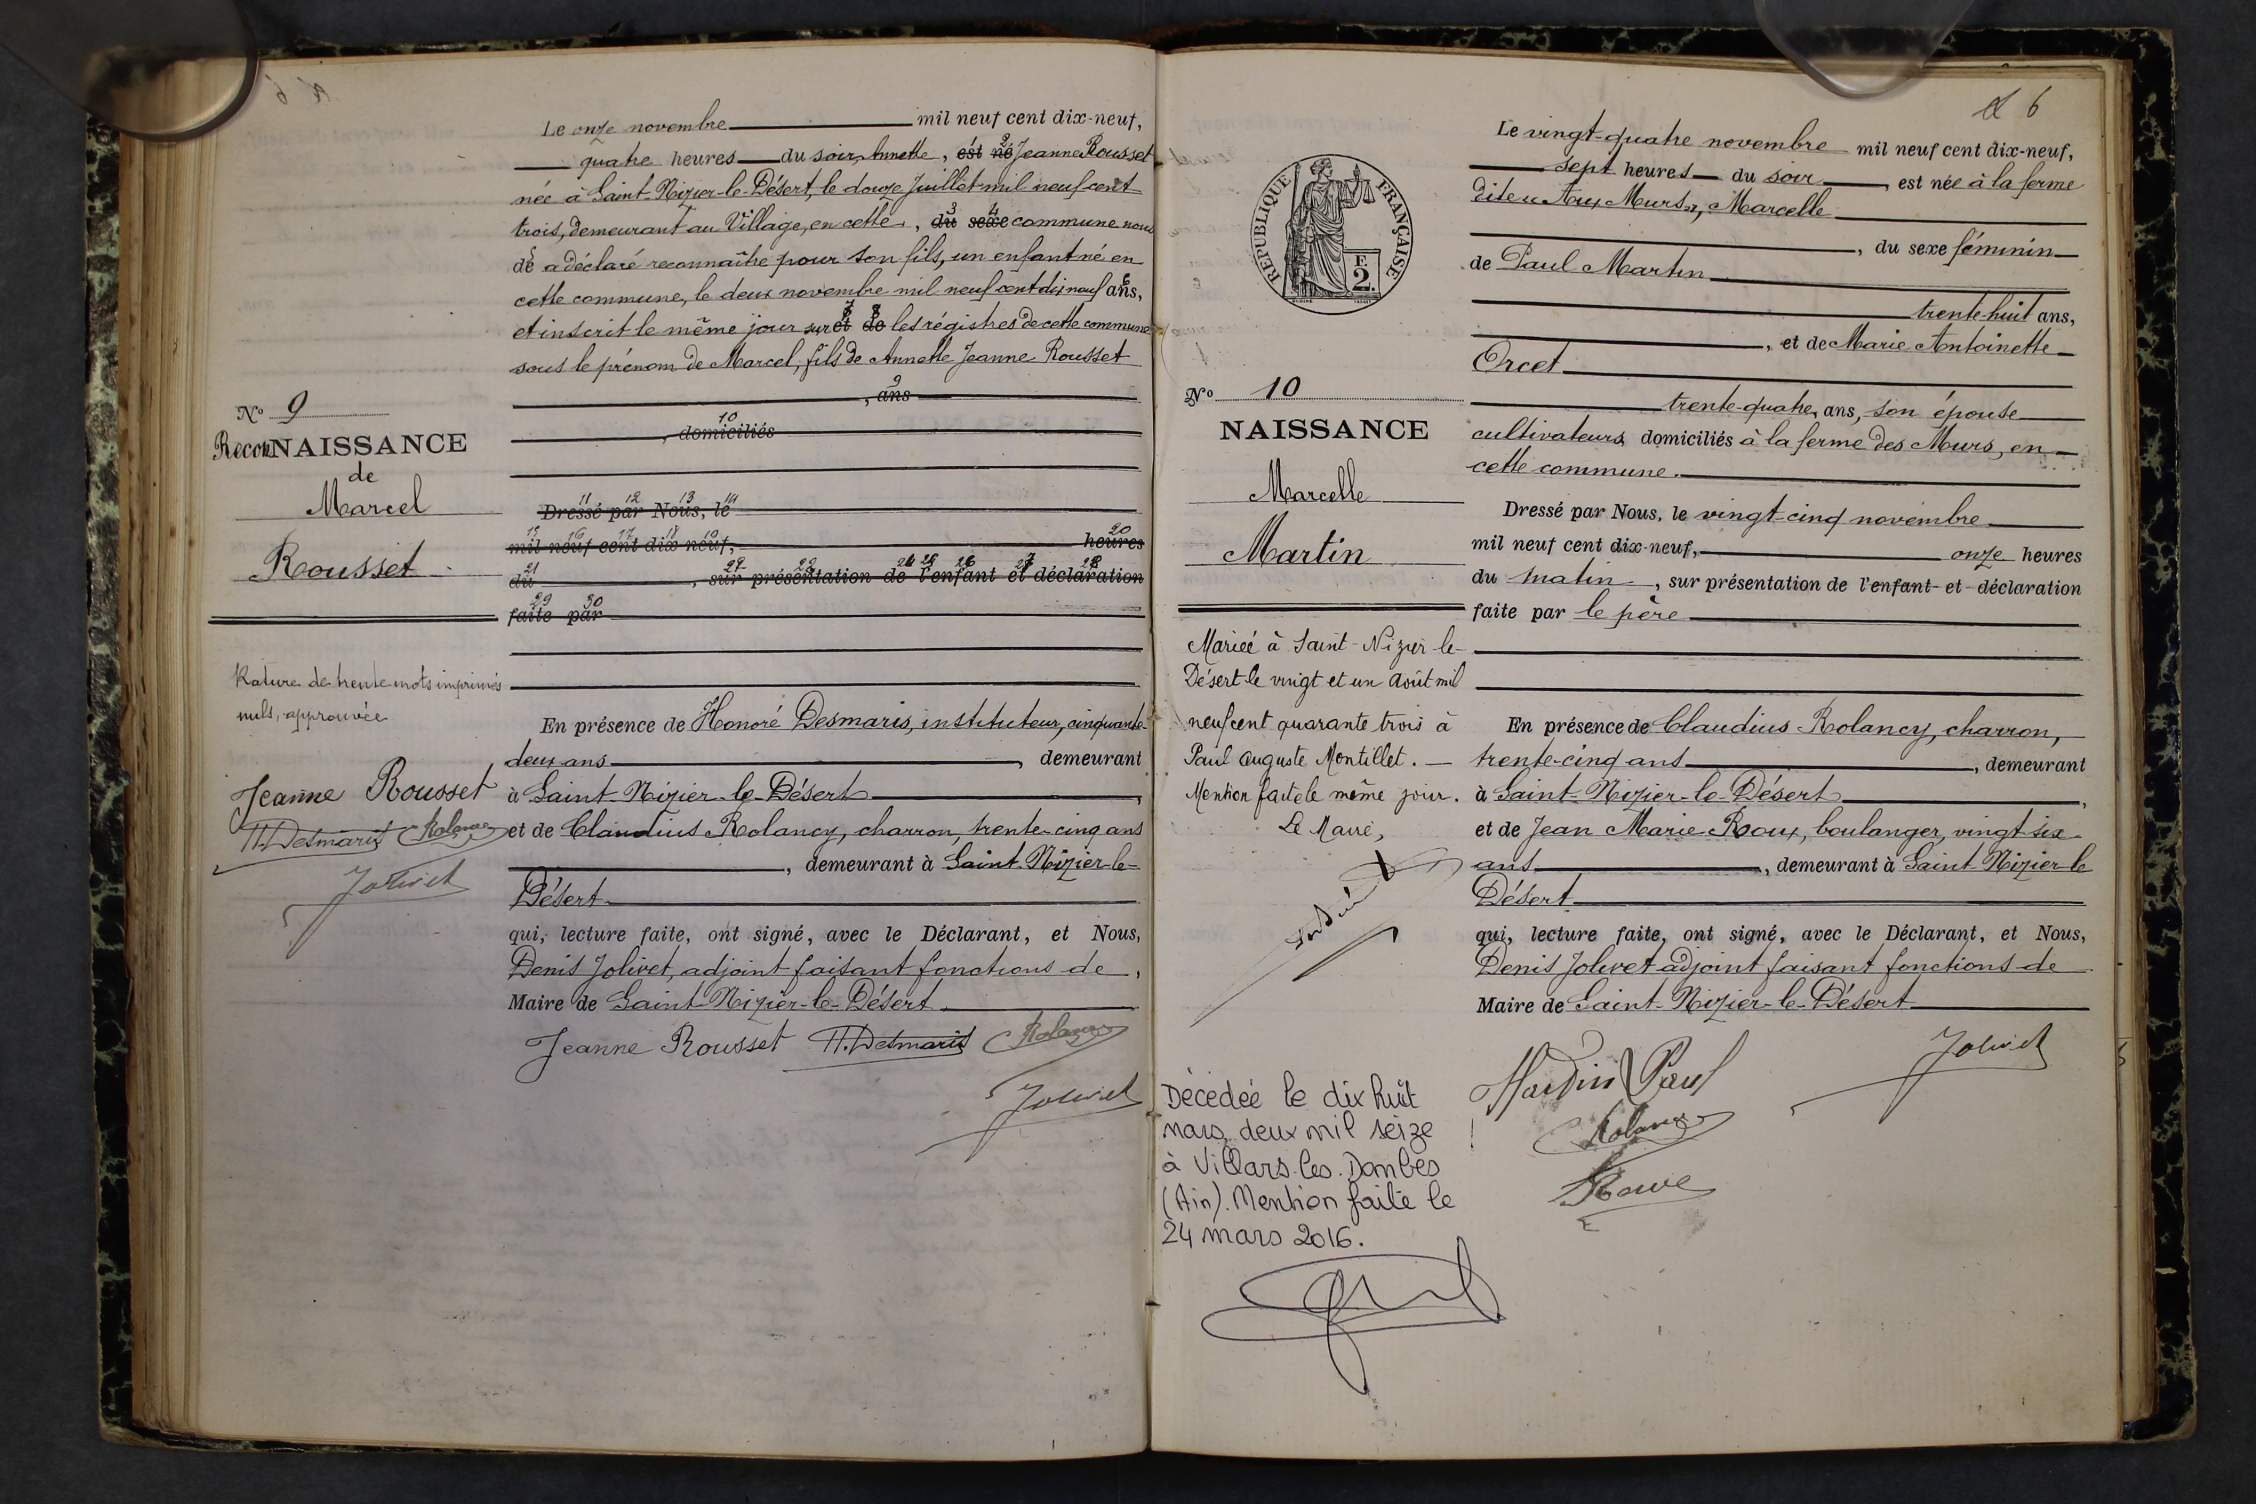 Le onze novembre mil neuf cent dix-neuf,
quatre heures du soir, Annette, est né Jeanne Rousset
née à Saint-Nizier-le-Désert, le douze Juillet mil neuf cent
trois, demeurant au Village, en cette, du sexe commune nous
de a déclaré reconnaître pour son fils, un enfant né en
cette commune, le deux novembre mil neuf cent dix neuf ans,
et inscrit le même jour sur et de les régistres de cette commune
sous le prénom de Marcel, fils de Annette Jeanne Rousset
, ans
, domiciliés
Dressé par Nous, le
mil neuf cent dix neuf, heures
du , sur présentation de l'enfant et déclaration
faite par
En présence de Honoré Desmaris, instituteur, cinquante-
deux ans, demeurant
à Saint-Nizier-le-Désert,
et de Claudius Rolancy, charron, trente-cinq ans
, demeurant à Saint-Nizier-le-
Désert
qui, lecture faite, ont signé, avec le Déclarant, et Nous,
Denis Jolivet, adjoint faisant fonctions de,
Maire de Saint-Nizier-le-Désert
Jeanne Rousset H. Desmaris Rolancy
Jolivet
No 9
ReconNAISSANCE
de
Marcel
Rousset
Rature de trente mots imprimés
nuls, approuvée
Jeanne Rousset
H. Desmaris Rolancy
Jolivet
6
Le vingt-quatre novembre mil neuf cent dix-neuf,
sept heures du soir, est née à la ferme
dite « Aux Murs », Marcelle
, du sexe féminin
de Paul Martin
trente-huit ans,
, et de Marie Antoinette
Orcet
trente-quatre, ans, son épouse
cultivateurs domiciliés à la ferme des Murs, en
cette commune.
Dressé par Nous, le vingt-cinq novembre
mil neuf cent dix-neuf, onze heures
du matin, sur présentation de l'enfant et déclaration
faite par le père
En présence de Claudius Rolancy, charron,
trente-cinq ans, demeurant
à Saint-Nizier-le-Désert,
et de Jean Marie Roux, boulanger, vingt-six
ans, demeurant à Saint-Nizier-le
Désert
qui, lecture faite, ont signé, avec le Déclarant, et Nous,
Denis Jolivet adjoint faisant fonctions de
Maire de Saint-Nizier-le-Désert
Martin Paul Jolivet
Rolancy
RÉPUBLIQUE FRANÇAISE
F
2.
No 10
NAISSANCE
Marcelle
Martin
Mariée à Saint-Nizier-le-
Désert le vingt et un Août mil
neuf cent quarante trois à
Paul Auguste Montillet.
Mention faite le même jour.
Le Maire,
Décédée le dix huit
mars deux mil seize
à Villars-les-Dombes
(Ain). Mention faite le
24 mars 2016.